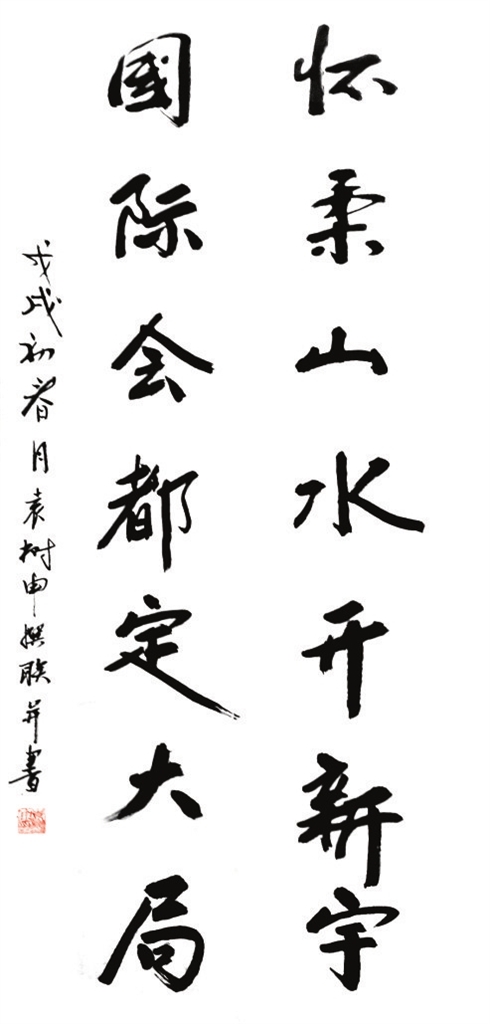 怀柔山水开新宇
國际会都定大局
戊戌初春月袁树申撰联并書